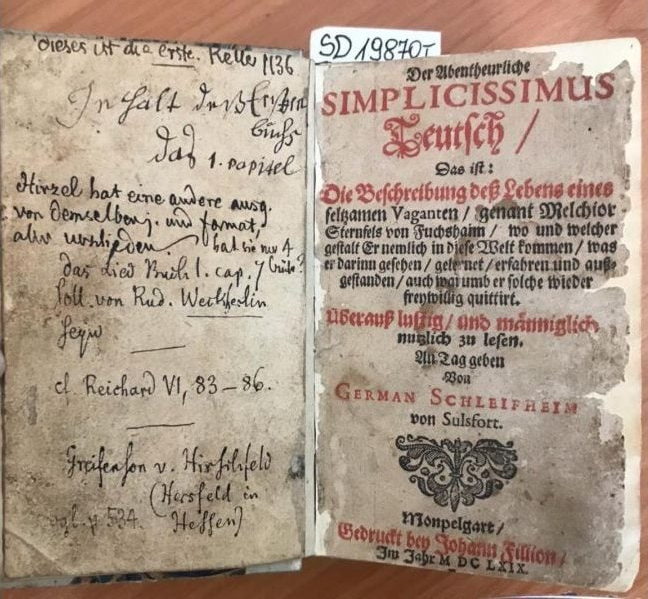 dieses ist die erste. Keller 1136
Inhalt deß Ersten
buchs
das 1. capitel
Hirzel hat eine andere ausg.
von demselben j. und format,
aber verschieden
hat sie nur 4
das Lied Buch 1. cap. 7
soll von Rud. Weckherlin
seyn
cf. Reichard VI, 83–86.
Greifenson v. Hirschfeld
(Hersfeld in
vgl. p 534. Hessen)
SD 19870T
Der Abentheurliche
SIMPLICISSIMUS
Teutsch /
Das ist:
Die Beschreibung deß Lebens eines
seltzamen Vaganten / genant Melchior
Sternfels von Fuchshaim / wo und welcher
gestalt Er nemlich in diese Welt kommen / was
er darinn gesehen / gelernet / erfahren und auß-
gestanden / auch warumb er solche wieder
freywillig quittirt.
Überauß lustig / und männiglich
nutzlich zu lesen.
An Tag geben
Von
GERMAN SCHLEIFHEIM
von Sulsfort.
Monpelgart /
Gedruckt bey Johann Fillion /
Im Jahr M DC LXIX.